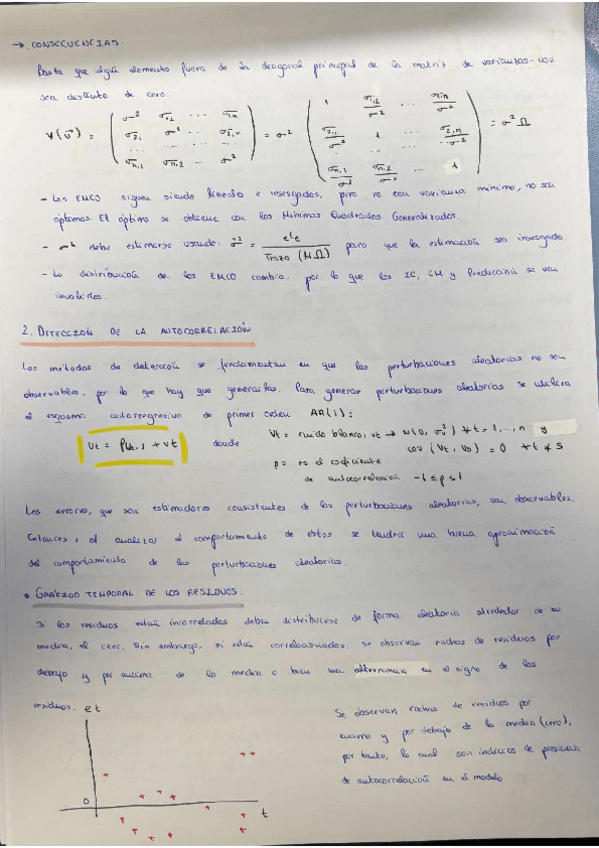 → CONSECUENCIAS:
Basta que algún elemento fuera de la diagonal principal de la matriz de varianzas-cov.
sea distinto de cero.
V(u⃗) = ( σ² σ₁₂ ... σ₁n ; σ₂,₁ σ² ... σ₂,n ; ... ; σn,1 σn,2 ... σ² ) = σ² ( 1 σ₁₂/σ² ... σ₁n/σ² ; σ₂,₁/σ² 1 ... σ₂,n/σ² ; ... ; σn,1/σ² σn,2/σ² ... 1 ) = σ² Ω
- Los EMCO siguen siendo lineales e insesgados, pero no con varianza mínima, no son
óptimos. El óptimo se obtiene con los Mínimos Cuadrados Generalizados.
- σ² debe estimarse usando: σ̂² = e'e / Traza (MΩ) para que la estimación sea insesgada.
- La distribución de los EMCO cambia, por lo que los IC, CH y Predicción se ven
2. DETECCIÓN DE LA AUTOCORRELACIÓN
Los métodos de detección se fundamentan en que las perturbaciones aleatorias no son
observables, por lo que hay que generarlas. Para generar perturbaciones aleatorias se utiliza
el esquema autorregresivo de primer orden AR(1):
Ut = ρUt-1 + vt donde Vt = ruido blanco, vt → N(0, σv²) ∀t = 1, ..., n y
cov (Vt, Vs) = 0 ∀t ≠ s
ρ = es el coeficiente
de autocorrelación -1 ≤ ρ ≤ 1
Los errores, que son estimadores consistentes de las perturbaciones aleatorias, son observables.
Entonces, al analizar el comportamiento de estos se tendrá una buena aproximación
del comportamiento de las perturbaciones aleatorias.
• GRÁFICO TEMPORAL DE LOS RESIDUOS:
Si los residuos están incorrelados deben distribuirse de forma aleatoria alrededor de su
media, el cero. Sin embargo, si están correlacionados, se observan rachas de residuos por
debajo y por encima de la media o bien una alternancia en el signo de los
residuos.
et
0
t
Se observan rachas de residuos por
encima y por debajo de la media (cero),
por tanto, lo cual son indicios de presencia
de autocorrelación en el modelo